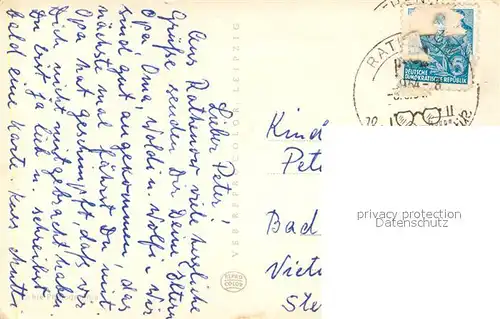 Lieber Peter!
Aus Rathenow viele herzliche
Grüße senden Dir Deine Eltern
Opa, Oma, Woldi u. Wolfi. Wir
sind gut angekommen, das
nächste mal fährst Du mit
Opa hat geschimpft, daß wir
Dich nicht mitgebracht haben.
Du bist ja lieb u. schreibst
bald eine Karte. Kuss Mutti
Kind
Pet
Bad
Vict
Ste
DEUTSCHE
DEMOKRATISCHE REPUBLIK
5
RAT
privacy protection
copyright